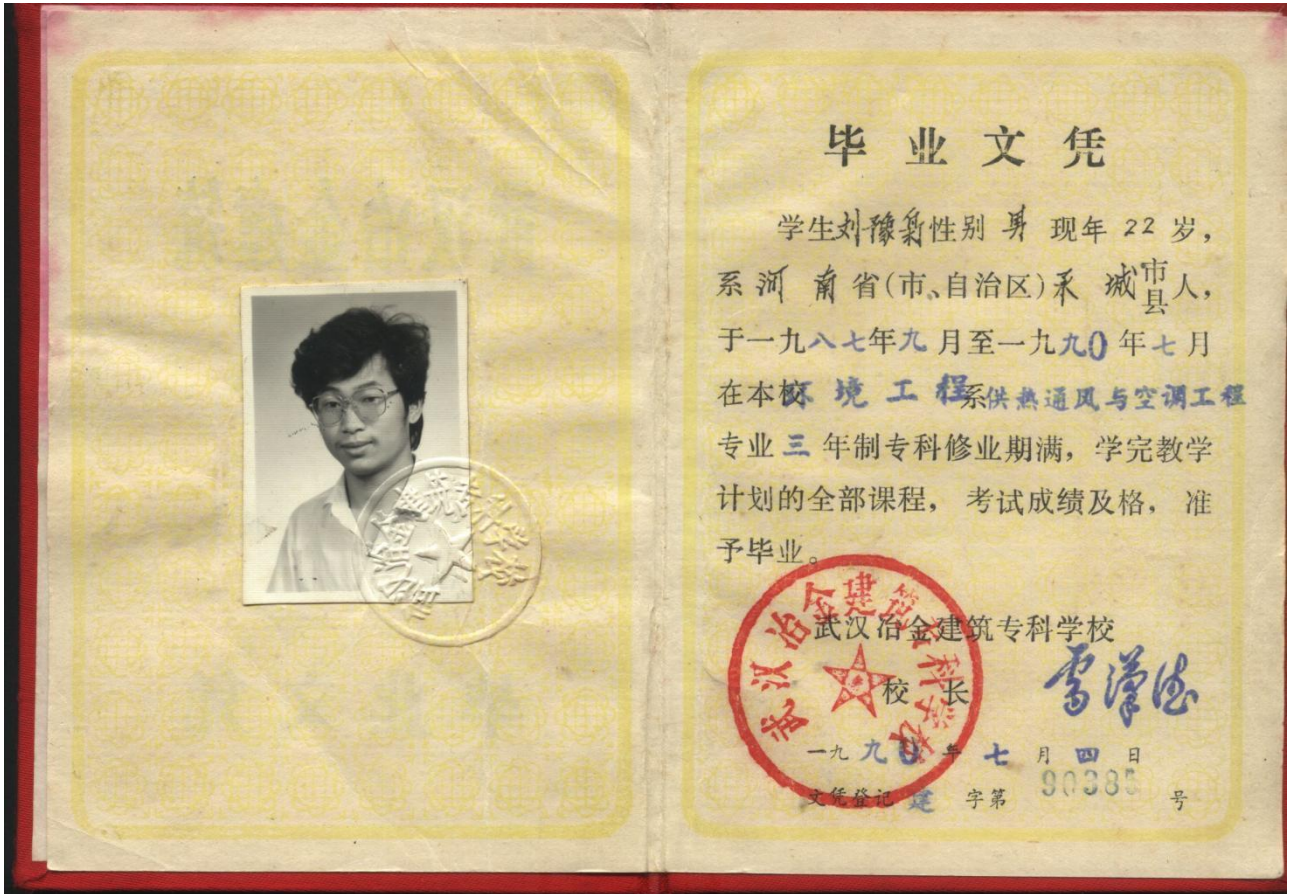 毕业文凭
学生刘豫 性别 男 现年 22 岁，
系河 南 省(市、自治区) 城市县人，
于一九八七年九月至一九九0年七月
在本校环境工程系供热通风与空调工程
专业三年制专科修业期满，学完教学
计划的全部课程，考试成绩及格，准
予毕业。
武汉冶金建筑专科学校
武汉冶金建筑专科学校
校 长
一九九0年七月四日
文凭登记 建 字第 90385 号